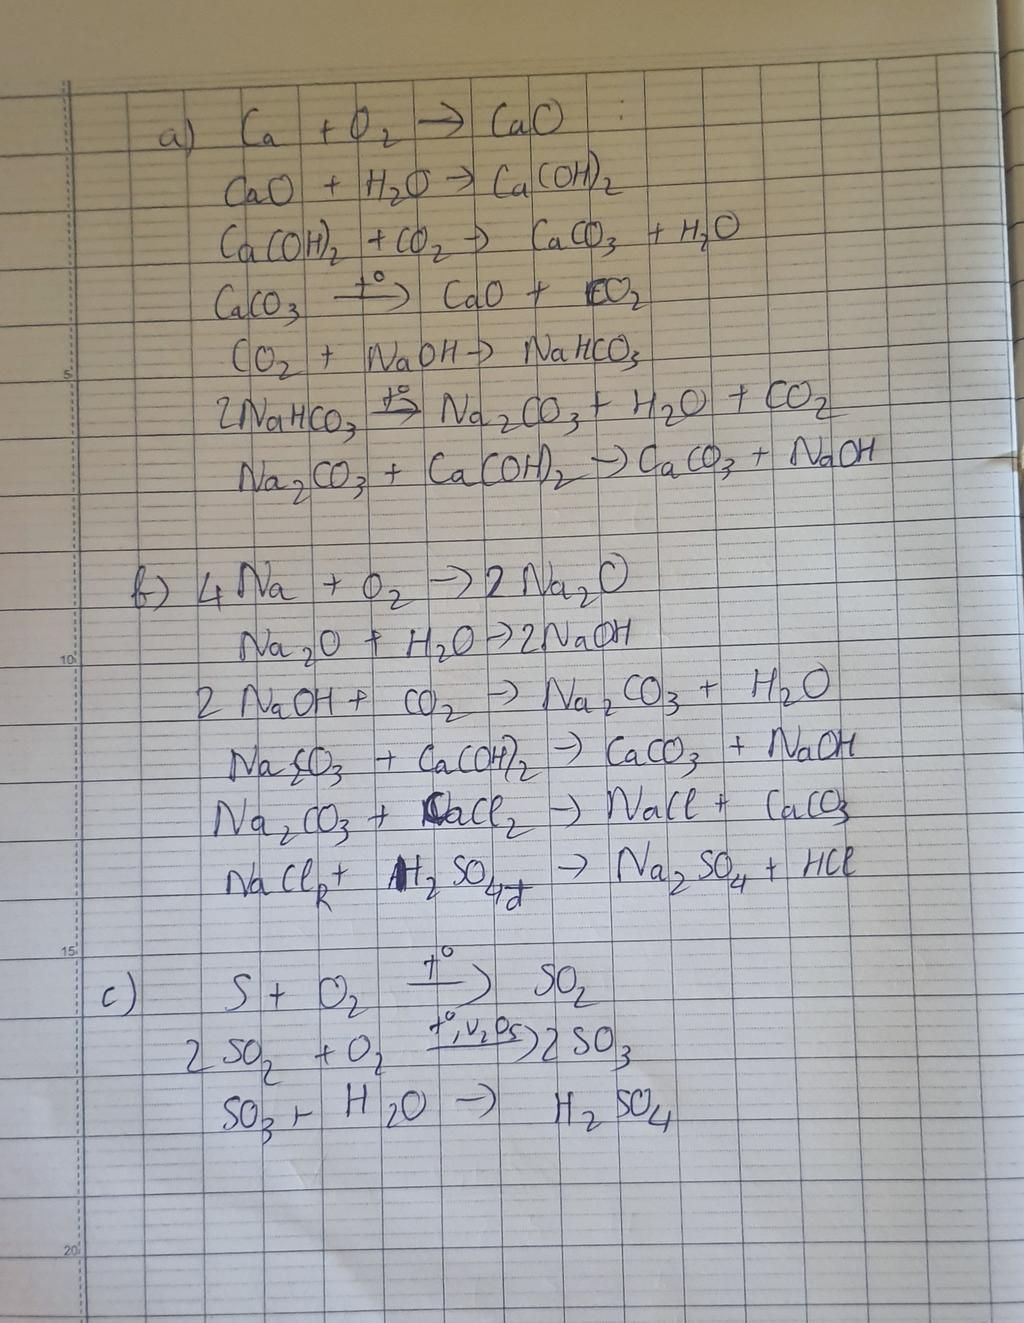 a) Ca2 + O2 → CaO
CaO + H2O → Ca(OH)2
Ca(OH)2 + CO2 → CaCO3 + H2O
CaCO3 t° → CaO + CO2
5
CO2 + NaOH → NaHCO3
2NaHCO3 t° → Na2CO3 + H2O + CO2
Na2CO3 + Ca(OH)2 → CaCO3 + NaOH
b) 4Na + O2 → 2Na2O
10
Na2O + H2O → 2NaOH
2NaOH + CO2 → Na2CO3 + H2O
Na2CO3 + Ca(OH)2 → CaCO3 + NaOH
Na2CO3 + CaCl2 → NaCl + CaCO3
NaClR + H2SO4đ → Na2SO4 + HCl
15
c) S + O2 t° → SO2
2SO2 + O2 t°, V2O5 → 2SO3
SO3 + H2O → H2SO4
20